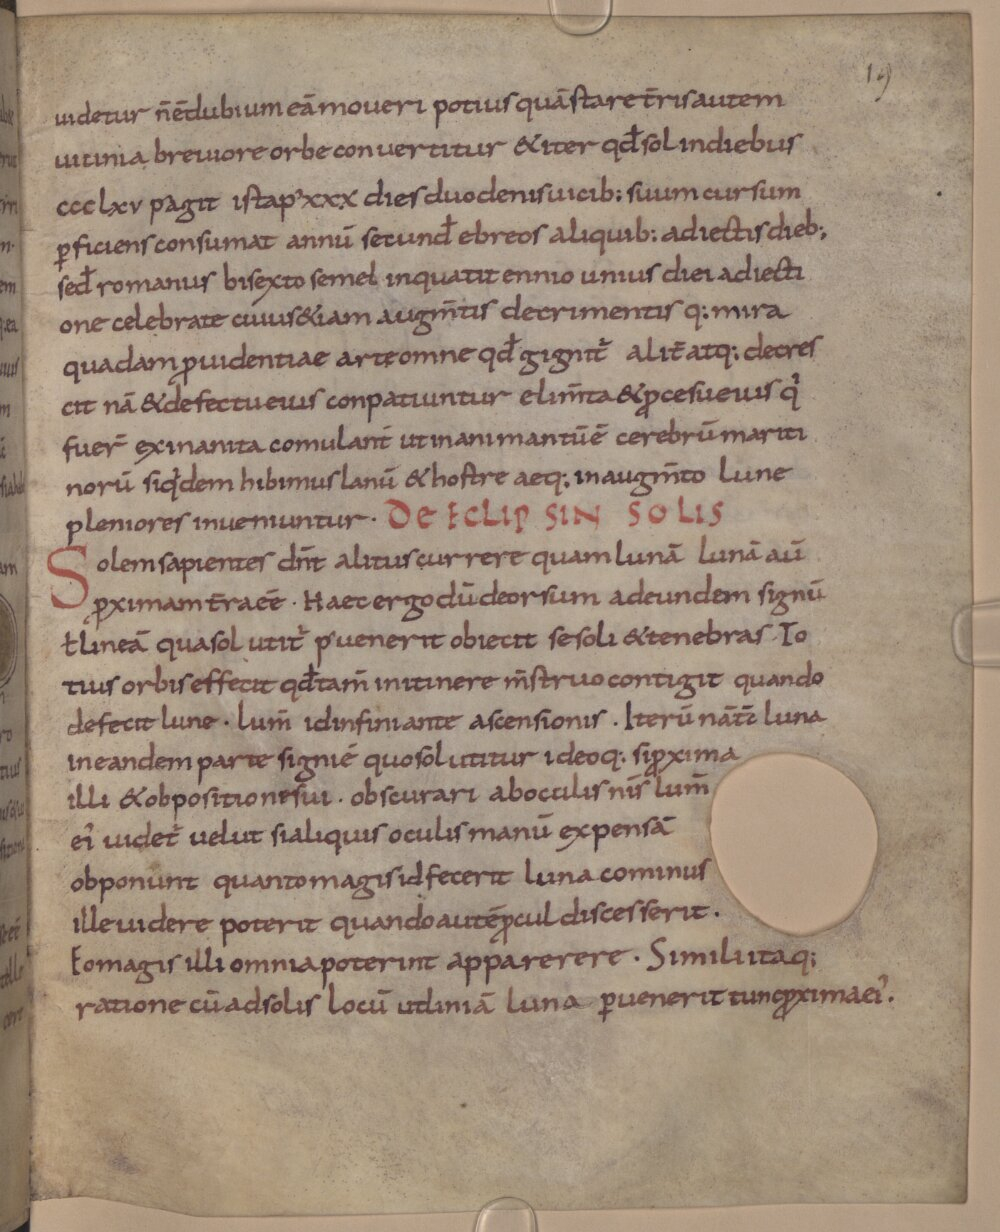 19
uidetur n̄ ē dubium eā moueri potius quā stare t̄ris autem
uitinia breuiore orbe conuertitur & iter qđ sol in diebus
ccclxv pagit ista p' xxx dies duodenis uicib: suum cursum
ꝑficiens consumat annū secund̄ ebreos aliquib: adiectis dieb:,
sed̄ romanus bisexto semel inquatit ennio unius diei adiecti
one celebrate cuius &iam augm̄tis decrimentis q: mira
quadam ꝓuidentiae arte omne qđ gignit̄ alit̄ atq: decres
cit nā & defectu eius conpatiuntur elim̄ta & ꝓcesu eius q'
fuer̄ exinanita comulant̄ ut inanimantū ē cerebrū mariti
norū siq'dem hibimus lanū & hostre aeq: in augm̄to lune
pleniores inueniuntur · DE ECLIP SIN SOLIS
Solem sapientes dn̄t altius currere quam lunā lunā aū
ꝓximam t̄rae ē · Haec ergo dū deorsum ad eundem signū
ł lineā qua sol utit̄ p'uenerit obiecit se soli & tenebras To
tius orbis effecit qđ tam̄ in itinere m̄struo contigit quando
defecit lune · lum̄ id in finiante ascensionis . Iterū nāt̄c luna
in eandem parte signi ē quo sol utitur ideoq: si ꝓxima
illi & obpositionē sui . obscurari ab oculis nīs lum̄
ei' uidet̄ uelut si aliquis oculis manū expensā
obponunt quanto magis id fecerit luna cominus
ille uidere poterit quando autē ꝓcul discesserit .
Eo magis illi omnia poterint apparerere . Simili itaq:
ratione cū ad solis locū ut liniā luna ꝑuenerit tunc ꝓxima ei' .